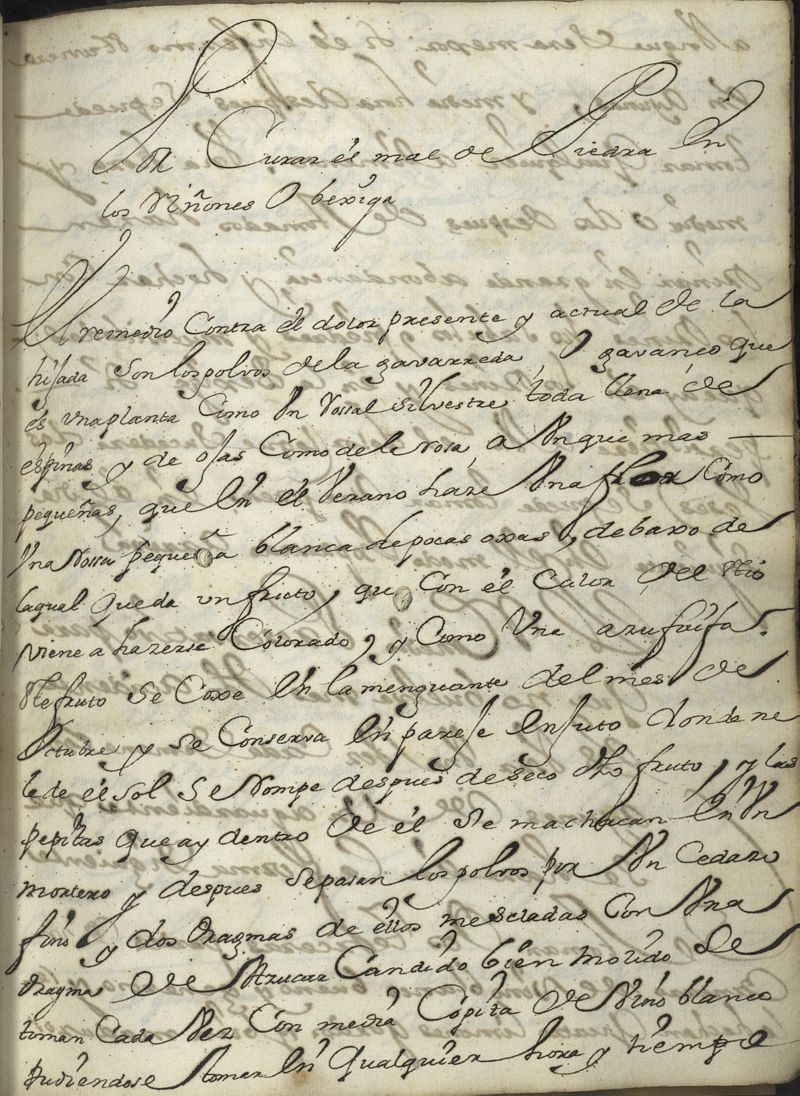 Pa Curar él mal de Piedra En
los Riñones O bexiga
El remedio Contra él dolor presente y actual de la
hijada son los polvos de la gavarreda, O gavanco que
és Vna planta Como Vn Rosal silvestre, toda llena, de
éspinas y de ojas Como de le Rosa, a Vnque mas —
pequeñas, que En él Verano haze Vna flor Como
Vna Rossa pequeña blanca de pocas oxas, debaxo de
la qual queda un fruto, que Con él Calor del
viene a hazerse Colorado, y Como Vna azufaifa.
fruto Se Coxe En la menguante del mes de
Octubre y se Conserva En pareje Enjuto donde ne
le de él Sol Se Rompe despues de seco dho fruto, y las
pepitas que ay dentro de él Se machacan En Vn
mortero y despues se pasan los polvos por Vn Cedazo
fino y dos dragmas de éllos mescladas Con Vna
dragma de Azucar Candido bien molido Se
toman Cada Vez Con media Copita de Vino blanco
pudiendose tomar En qualquier hora y tiempo